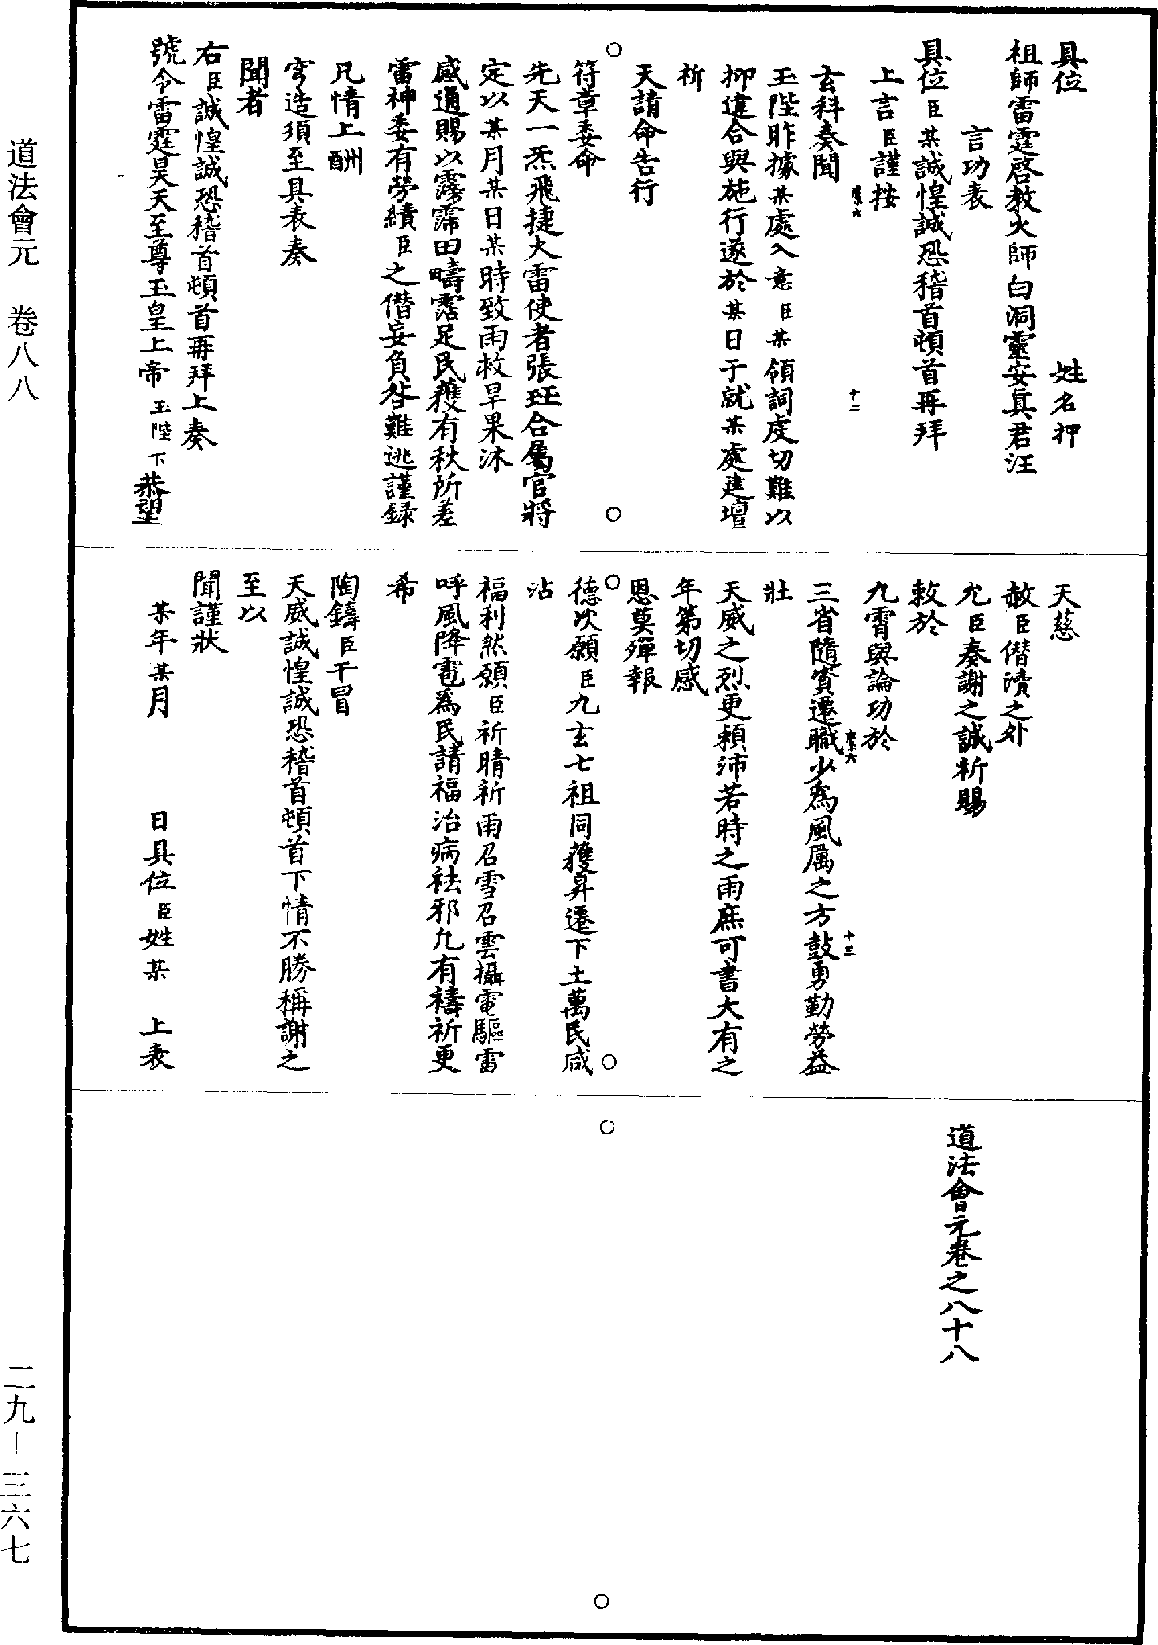 具位　　　　　　　　　姓名押
祖師雷霆啓教火師白洞靈安真君汪
言功表
具位臣某誠惶誠恐稽首頓首再拜
上言臣謹按
玄科奏聞
玉陛昨據某處入意臣某領詞虔切難以
抑違合與施行遂於某日于就某處建壇
祈
天請命告行
符章委命
先天一炁飛捷大雷使者張珏合屬官將
定以某月某日某時致雨救旱果沐
感通賜以霶霈田疇霑足民獲有秋所差
雷神委有勞績臣之僭妄負咎難逃謹録
凡情上酬
穹造須至具表奏
聞者
右臣誠惶誠恐稽首頓首再拜上奏
號令雷霆昊天至尊玉皇上帝玉陛下恭望
天慈
赦臣僭瀆之外
允臣奏謝之誠祈賜
敕於
九霄與論功於
三省隨賞遷職少爲風厲之方鼓勇勤勞益
壯
天威之烈更頼沛若時之雨庶可書大有之
年第切感
恩莫殫報
德次願臣九玄七祖同獲昇遷下土萬民咸
沾
福利然願臣祈晴祈雨召雪召雲攝電驅雷
呼風降雹爲民請福治病祛邪凢有禱祈更
希
陶鑄臣干冒
天威誠惶誠恐稽首頓首下情不勝稱謝之
至以
聞謹狀
某年某月　　日具位臣姓某　上表
道法會元卷之八十八
十二
十三
道法會元　卷八八
二九—三六七